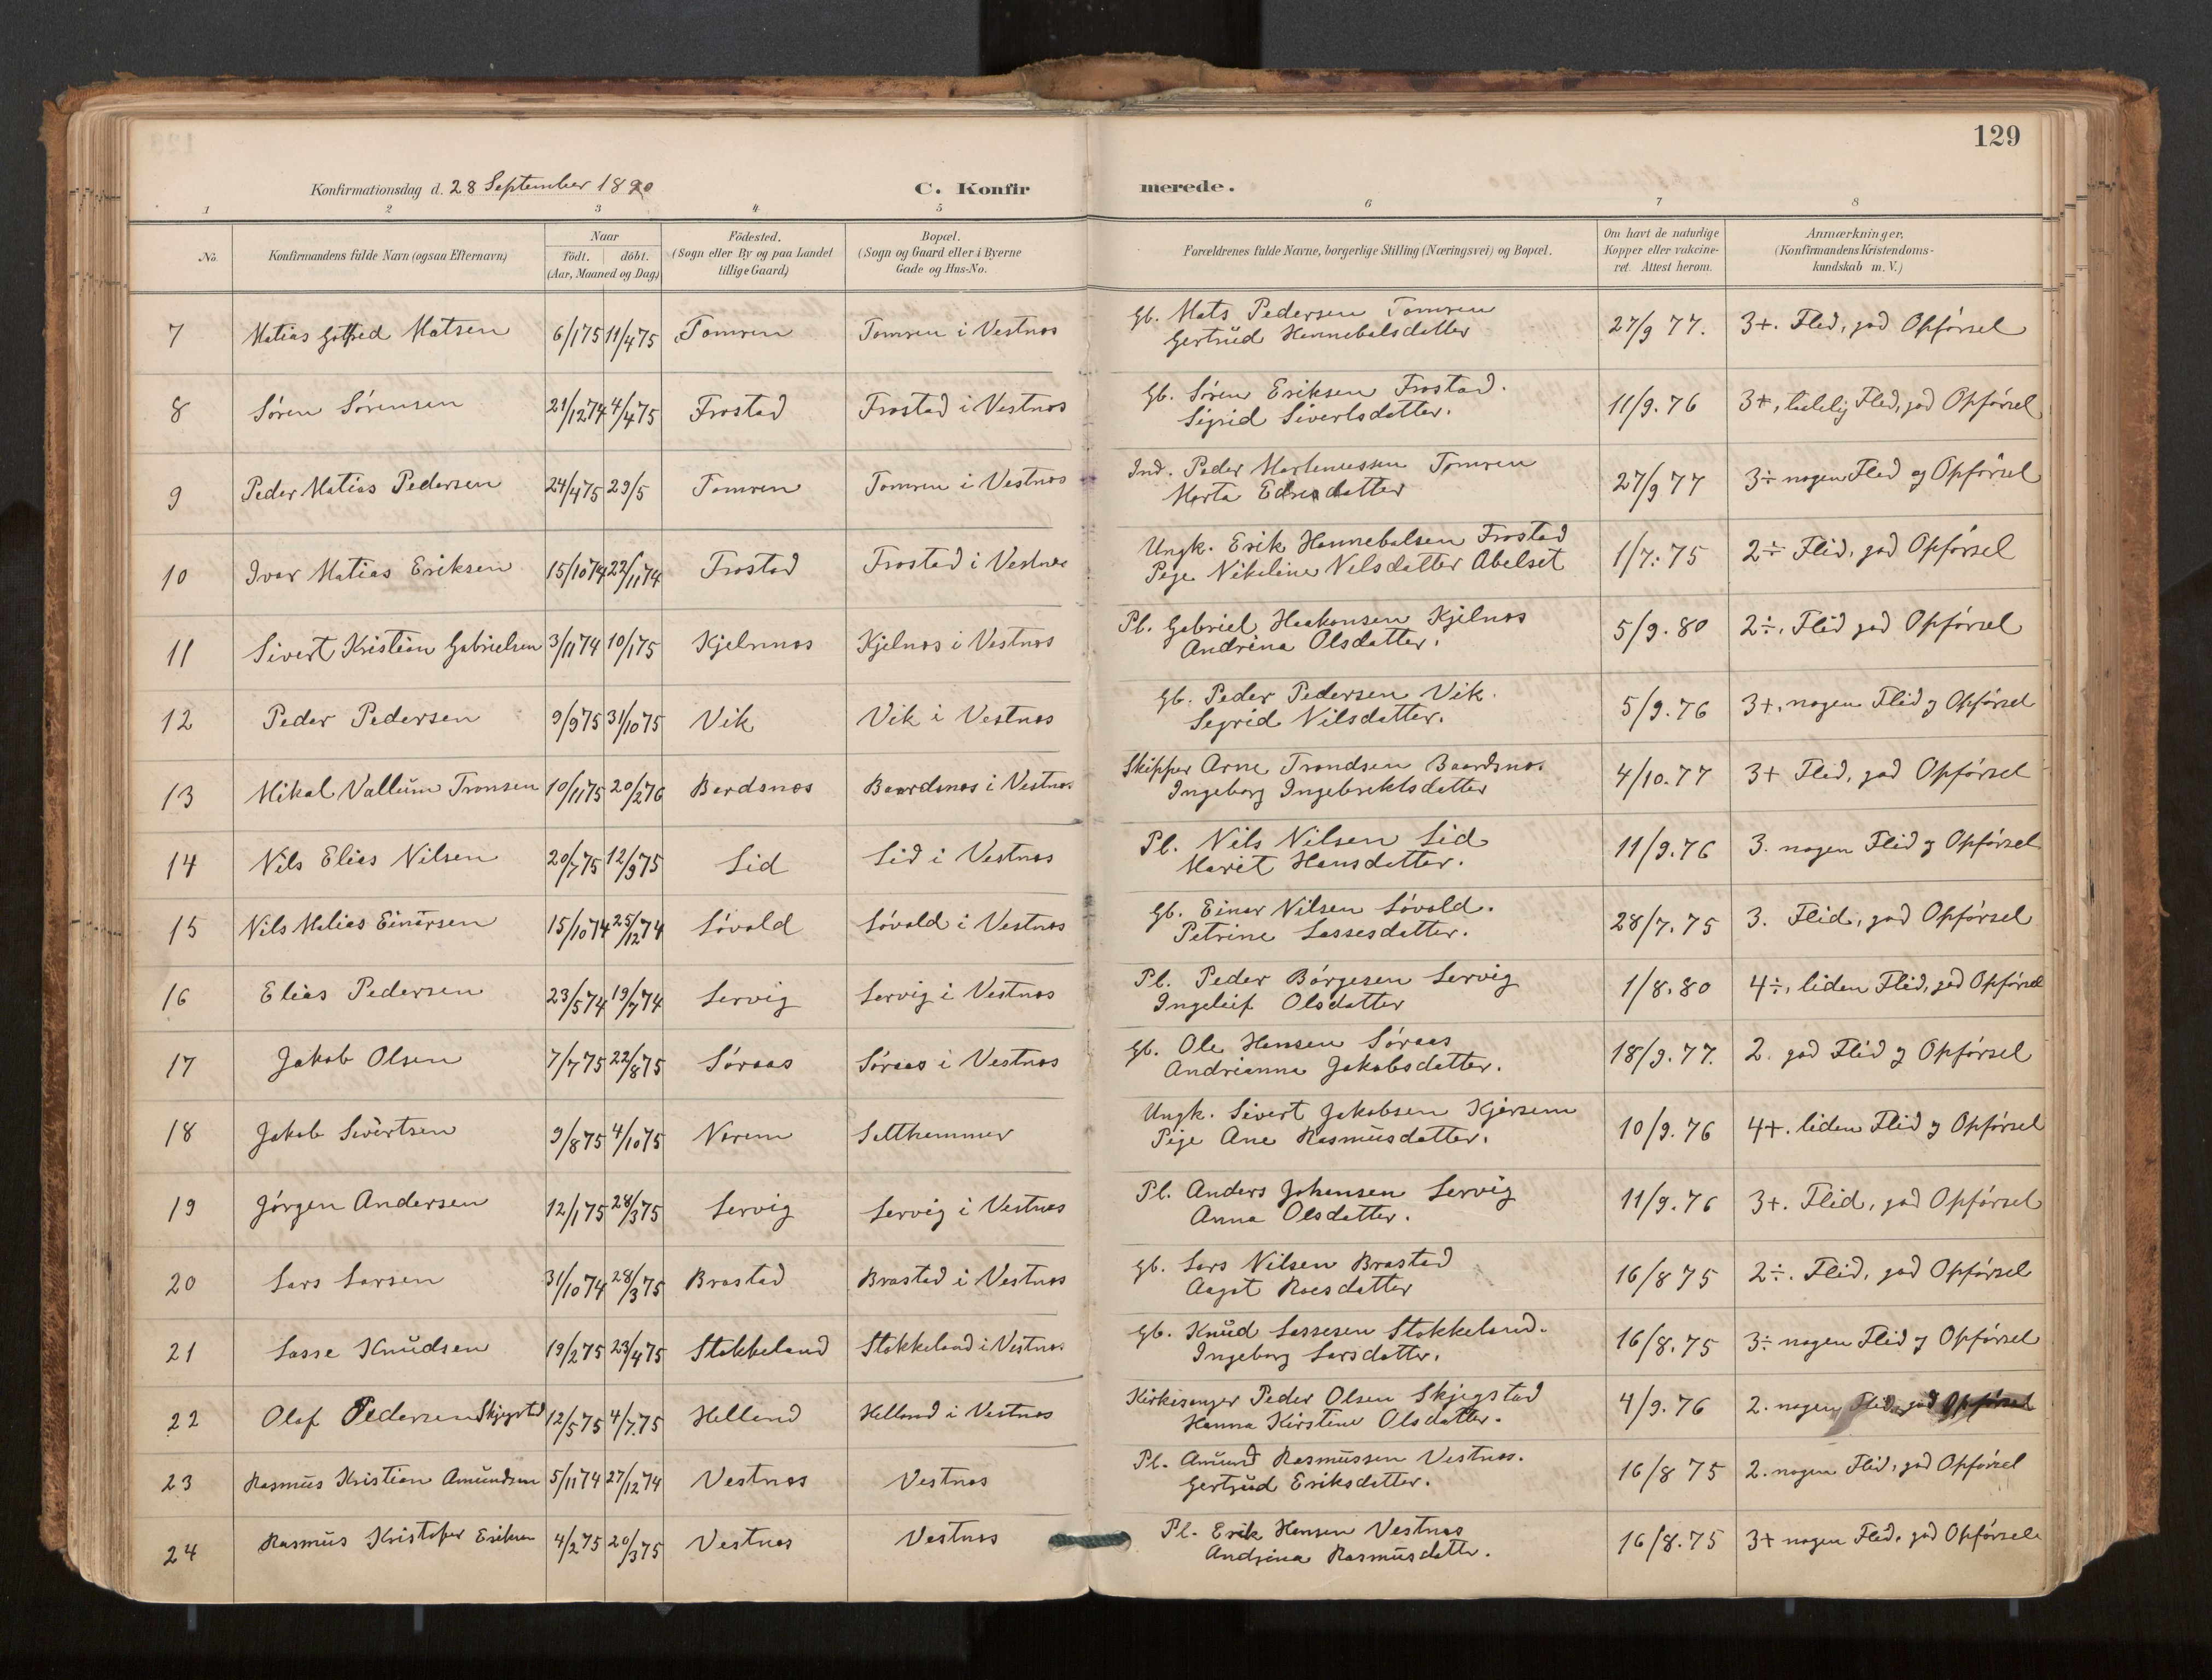 129
Konfirmationsdag d. 28 September 1890
C. Konfirmerede.
1 2 3 4 5 6 7 8
No. Konfirmandens fulde Navn (ogsaa Efternavn) Naar født. døbt. (Aar, Maaned og Dag) Födested. (Sogn eller By og paa Landet tillige Gaard) Bopæl. (Sogn og Gaard eller i Byerne Gade og Hus-No. Forældrenes fulde Navne, borgerlige Stilling (Næringsvei) og Bopæl. Om havt de naturlige Kopper eller vakcineret. Attest herom. Anmærkninger. (Konfirmandens Kristendomskundskab m.V.)
7 Matias Gotfred Matsen 6/1 75 11/4 75 Tomren Tomren i Vestnes Gb. Mats Pedersen Tomren 27/9 77. 3+. Flid, god Opførsel
Gertrud Hannebalsdatter
8 Søren Sørensen 21/12 74 4/4 75 Frostad Frostad i Vestnes Gb. Søren Eriksen Frostad. 11/9. 76 3+, taalelig Flid, god Opførsel
Sigrid Sivertsdatter.
9 Peder Matias Pedersen 24/4 75 29/5 Tomren Tomren i Vestnes Ind. Peder Martinussen Tomren 27/9 77 3÷ nogen Flid og Opførsel
Marta Endresdatter
10 Ivar Matias Eriksen 15/10 74 22/11 74 Frostad Frostad i Vestnes Ungk. Erik Hannebalsen Frostad 1/7. 75 2÷ Flid, god Opførsel
Pige Nikoline Nilsdatter Abelset
11 Sivert Kristian Gabrielsen 3/11 74 10/1 75 Kjelnnes Kjelnes i Vestnes Pl. Gabriel Haakonsen Kjelnes 5/9. 80 2÷, Flid god Opførsel
Andrina Olsdatter.
12 Peder Pedersen 9/9 75 31/10 75 Vik Vik i Vestnes Gb. Peder Pedersen Vik. 5/9. 76 3+, nogen Flid og Opførsel
Segrid Nilsdatter.
13 Mikal Vallum Tronsen 10/11 75 20/2 76 Bardsnes Baardsnes i Vestnes Skipper Arne Trondsen Baardsnes. 4/10. 77 3+ Flid, god Opførsel
Ingeborg Ingebrektsdatter
14 Nils Elias Nilsen 20/7 75 12/9 75 Lid Lid i Vestnes Pl. Nils Nilsen Lid 11/9. 76 3. nogen Flid og Opførsel
Marit Hansdatter.
15 Nils Matias Einarsen 15/10 74 25/12 74 Løvold Løvold i Vestnes Gb. Einar Nilsen Løvold. 28/7. 75 3. Flid, god Opførsel
Petrine Lassesdatter.
16 Elias Pedersen 23/5 74 19/7 74 Lervig Lervig i Vestnes Pl. Peder Børgesen Lervig 1/8. 80 4÷, liden Flid, god Opførsel
Ingeleif Olsdatter
17 Jakob Olsen 7/7 75 22/8 75 Søraas Søraas i Vestnes Gb. Ole Hansen Søraas 18/9. 77. 2. god Flid og Opførsel
Andrianna Jakobsdatter.
18 Jakob Sivertsen 9/8 75 4/10 75 Norem Setthammer Ungk. Sivert Jakobsen Kjersem 10/9. 76 4+. liden Flid og Opførsel
Pige Ane Rasmusdatter.
19 Jørgen Andersen 12/1 75 28/3 75 Lervig Lervig i Vestnes Pl. Anders Johansen Lervig 11/9. 76 3+. Flid, god Opførsel
Anna Olsdatter.
20 Lars Larsen 31/10 74 28/3 75 Brastad Brastad i Vestnes Gb. Lars Nilsen Brastad 16/8 75 2÷. Flid, god Opførsel
Aagot Roesdatter
21 Lasse Knudsen 19/2 75 23/4 75 Stokkeland Stokkeland i Vestnes Gb. Knud Lassesen Stokkeland. 16/8. 75 3÷ nogen Flid og Opførsel
Ingeborg Larsdatter.
22 Olaf Pedersen Skjegstad 12/5 75 4/7. 75 Helland Helland i Vestnes Kirkesanger Peder Olsen Skjegstad 4/9. 76 2. nogen Flid, god Opførsel
Hanna Kirstine Olsdatter.
23 Rasmus Kristian Amundsen 5/11 74 27/12 74 Vestnes Vestnes Pl. Amund Rasmussen Vestnes. 16/8 75 2. nogen Flid, god Opførsel
Gertrud Eriksdatter.
24 Rasmus Kristofer Eriksen 4/2 75 20/3 75 Vestnes Vestnes Pl. Erik Hansen Vestnes 16/8. 75 3+ nogen Flid, god Opførsel.
Andrina Rasmusdatter.